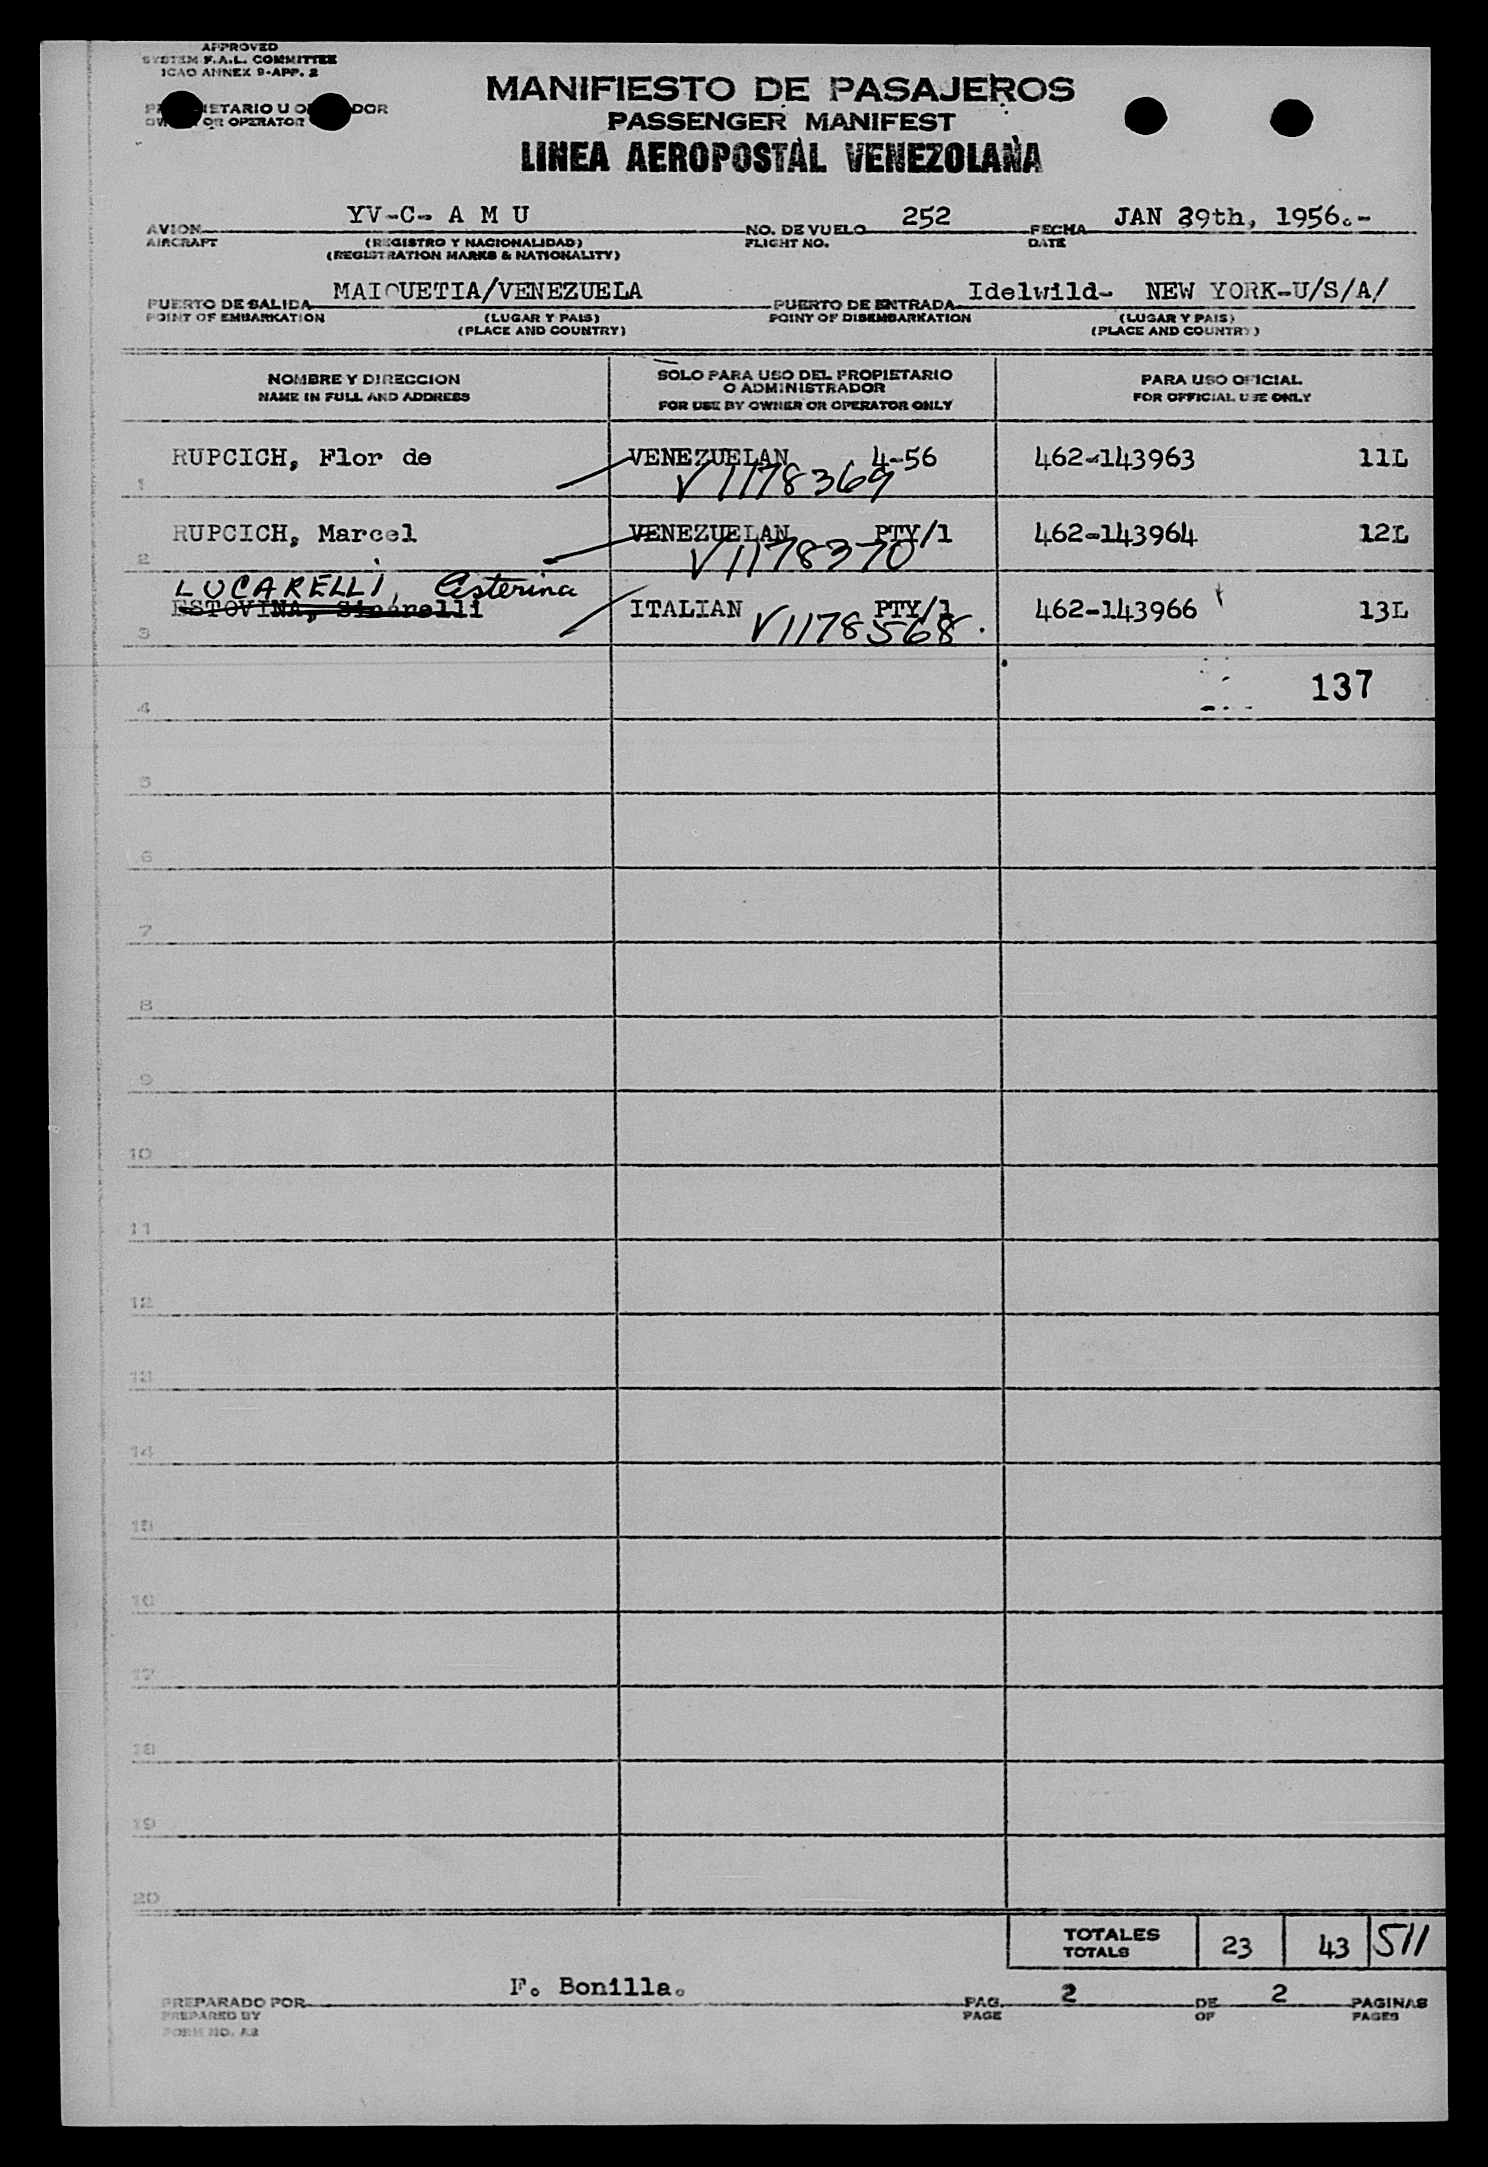 APPROVED
SYSTEM F.A.L. COMMITTEE
ICAO ANNEX 9-APP. 2
MANIFIESTO DE PASAJEROS
PASSENGER MANIFEST
LINEA AEROPOSTAL VENEZOLANA
OR OPERATOR
AVION YV-C- A M U NO. DE VUELO 252 FECHA JAN 29th, 1956.-
AIRCRAFT (REGISTRO Y NACIONALIDAD) FLIGHT NO. DATE
(REGISTRATION MARKS & NATIONALITY)
PUERTO DE SALIDA MAIQUETIA/VENEZUELA PUERTO DE ENTRADA Idelwild- NEW YORK-U/S/A/
POINT OF EMBARKATION (LUGAR Y PAIS) POINT OF DISEMBARKATION (LUGAR Y PAIS)
(PLACE AND COUNTRY) (PLACE AND COUNTRY)
NOMBRE Y DIRECCION SOLO PARA USO DEL PROPIETARIO PARA USO OFICIAL
NAME IN FULL AND ADDRESS O ADMINISTRADOR FOR OFFICIAL USE ONLY
FOR USE BY OWNER OR OPERATOR ONLY
RUPCICH, Flor de VENEZUELAN 4-56 462-143963 11L
1 V1178369
RUPCICH, Marcel VENEZUELAN PTY/1 462-143964 12L
2 V1178370
LUCARELLI, Asterina
ESTOVINA, ITALIAN PTY/1 462-143966 13L
3 V1178568.
137
4
5
6
7
8
9
10
11
12
13
14
15
16
17
18
19
20
TOTALES 23 43 511
TOTALS
PREPARADO POR F. Bonilla. PAG. 2 DE 2 PAGINAS
PREPARED BY PAGE OF PAGES
FORM NO. A2